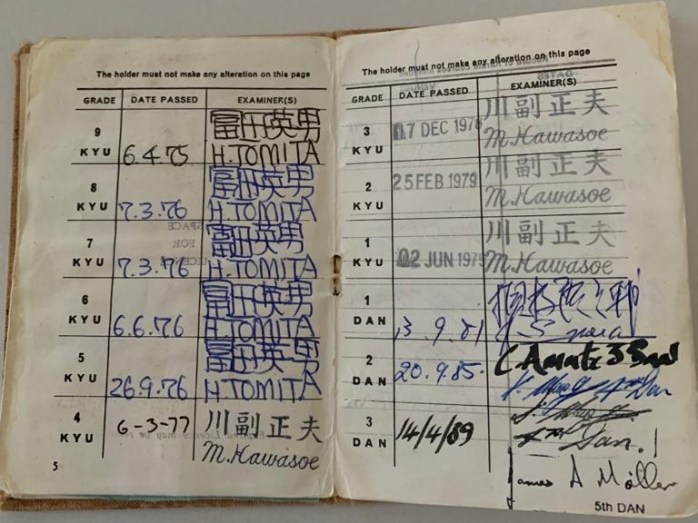 The holder must not make any alteration on this page
GRADE DATE PASSED EXAMINER(S)
9 KYU 6.4.75 冨田英男 H.TOMITA
8 KYU 7.3.76 冨田英男 H.TOMITA
7 KYU 7.3.76 冨田英男 H.TOMITA
6 KYU 6.6.76 冨田英男 H.TOMITA
5 KYU 26.9.76 冨田英男 H.TOMITA
4 KYU 6-3-77 川副正夫 M.Kawasoe
5
The holder must not make any alteration on this page
GRADE DATE PASSED EXAMINER(S)
3 KYU 17 DEC 1978 川副正夫 M.Kawasoe
2 KYU 25 FEB 1979 川副正夫 M.Kawasoe
1 KYU 02 JUN 1979 川副正夫 M.Kawasoe
1 DAN 13.9.81
2 DAN 20.9.85.
3 DAN 14/4/89 Dan.
James A Möller
5th DAN